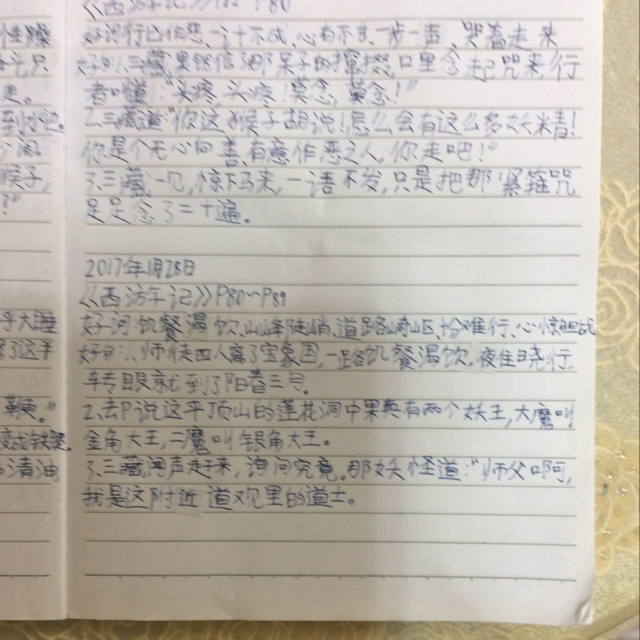 好词:行凶作恶、一计不成、心有不甘、一步一声、哭着走来
好句:1.三藏果然信那呆子的撺掇,口里念起咒来,行
者叫道:"头疼,头疼!莫念,莫念!"
2.三藏道"你这猴子胡说!怎么会有这么多妖精!
你是个无心向善,有意作恶之人,你走吧!"
3.三藏一见,惊下马来,一语不发,只是把那紧箍咒
足足念了二十遍。
2017年1月28日
《西游记》P80~P89
好词:饥餐渴饮、山峰陡峭、道路崎岖、十分难行、心惊胆战
好句:1.师徒四人离了宝象国,一路饥餐渴饮,夜住晓行
转眼就到了阳春三旬。
2.却说这平顶山的莲花洞中果真有两个妖王,大魔叫
金角大王,二魔叫银角大王。
3.三藏闻声赶来,询问究竟。那妖怪道:"师父啊,
我是这附近道观里的道士。